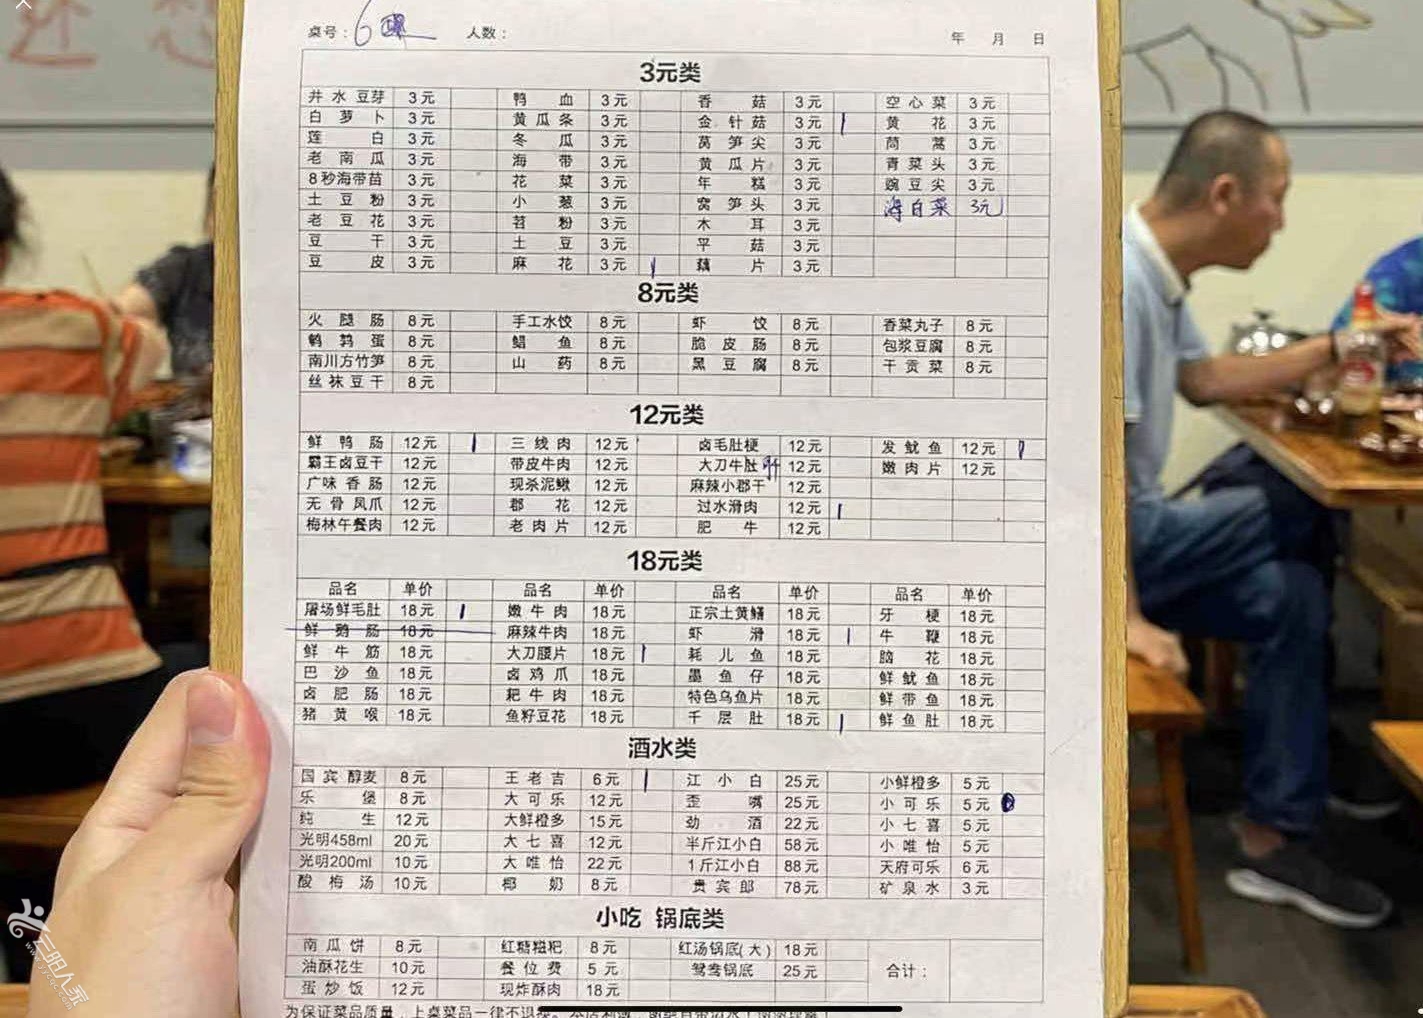 还想
桌号： 6 人数： 年 月 日
3元类
井水豆芽 3元 鸭血 3元 香菇 3元 空心菜 3元
白萝卜 3元 黄瓜条 3元 金针菇 3元 黄花 3元
莲白 3元 冬瓜 3元 莴笋尖 3元 茼蒿 3元
老南瓜 3元 海带 3元 黄瓜片 3元 青菜头 3元
8秒海带苗 3元 花菜 3元 年糕 3元 豌豆尖 3元
土豆粉 3元 小葱 3元 窝笋头 3元 海白菜 3元
老豆花 3元 苕粉 3元 木耳 3元
豆干 3元 土豆 3元 平菇 3元
豆皮 3元 麻花 3元 藕片 3元
8元类
火腿肠 8元 手工水饺 8元 虾饺 8元 香菜丸子 8元
鹌鹑蛋 8元 鲳鱼 8元 脆皮肠 8元 包浆豆腐 8元
南川方竹笋 8元 山药 8元 黑豆腐 8元 干贡菜 8元
丝袜豆干 8元
12元类
鲜鸭肠 12元 三线肉 12元 卤毛肚梗 12元 发鱿鱼 12元
霸王卤豆干 12元 带皮牛肉 12元 大刀牛肚 12元 嫩肉片 12元
广味香肠 12元 现杀泥鳅 12元 麻辣小郡干 12元
无骨凤爪 12元 郡花 12元 过水滑肉 12元
梅林午餐肉 12元 老肉片 12元 肥牛 12元
18元类
品名 单价 品名 单价 品名 单价 品名 单价
屠场鲜毛肚 18元 嫩牛肉 18元 正宗土黄鳝 18元 牙梗 18元
鲜鹅肠 18元 麻辣牛肉 18元 虾滑 18元 牛鞭 18元
鲜牛筋 18元 大刀腰片 18元 耗儿鱼 18元 脑花 18元
巴沙鱼 18元 卤鸡爪 18元 墨鱼仔 18元 鲜鱿鱼 18元
卤肥肠 18元 耙牛肉 18元 特色乌鱼片 18元 鲜带鱼 18元
猪黄喉 18元 鱼籽豆花 18元 千层肚 18元 鲜鱼肚 18元
酒水类
国宾醇麦 8元 王老吉 6元 江小白 25元 小鲜橙多 5元
乐堡 8元 大可乐 12元 歪嘴 25元 小可乐 5元
纯生 12元 大鲜橙多 15元 劲酒 22元 小七喜 5元
光明458ml 20元 大七喜 12元 半斤江小白 58元 小唯怡 5元
光明200ml 10元 大唯怡 22元 1斤江小白 88元 天府可乐 6元
酸梅汤 10元 椰奶 8元 贵宾郎 78元 矿泉水 3元
小吃 锅底类
南瓜饼 8元 红糖糍粑 8元 红汤锅底(大) 18元
油酥花生 10元 餐位费 5元 鸳鸯锅底 25元 合计：
蛋炒饭 12元 现炸酥肉 18元
为保证菜品质量，上桌菜品一律不退
云阳人家